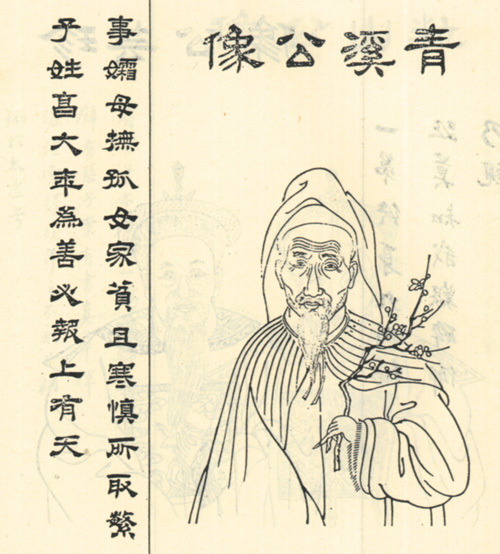 青溪公像
事孀母撫孤女家貧且寒慎所取繁
子姓亯大年為善必報上有天